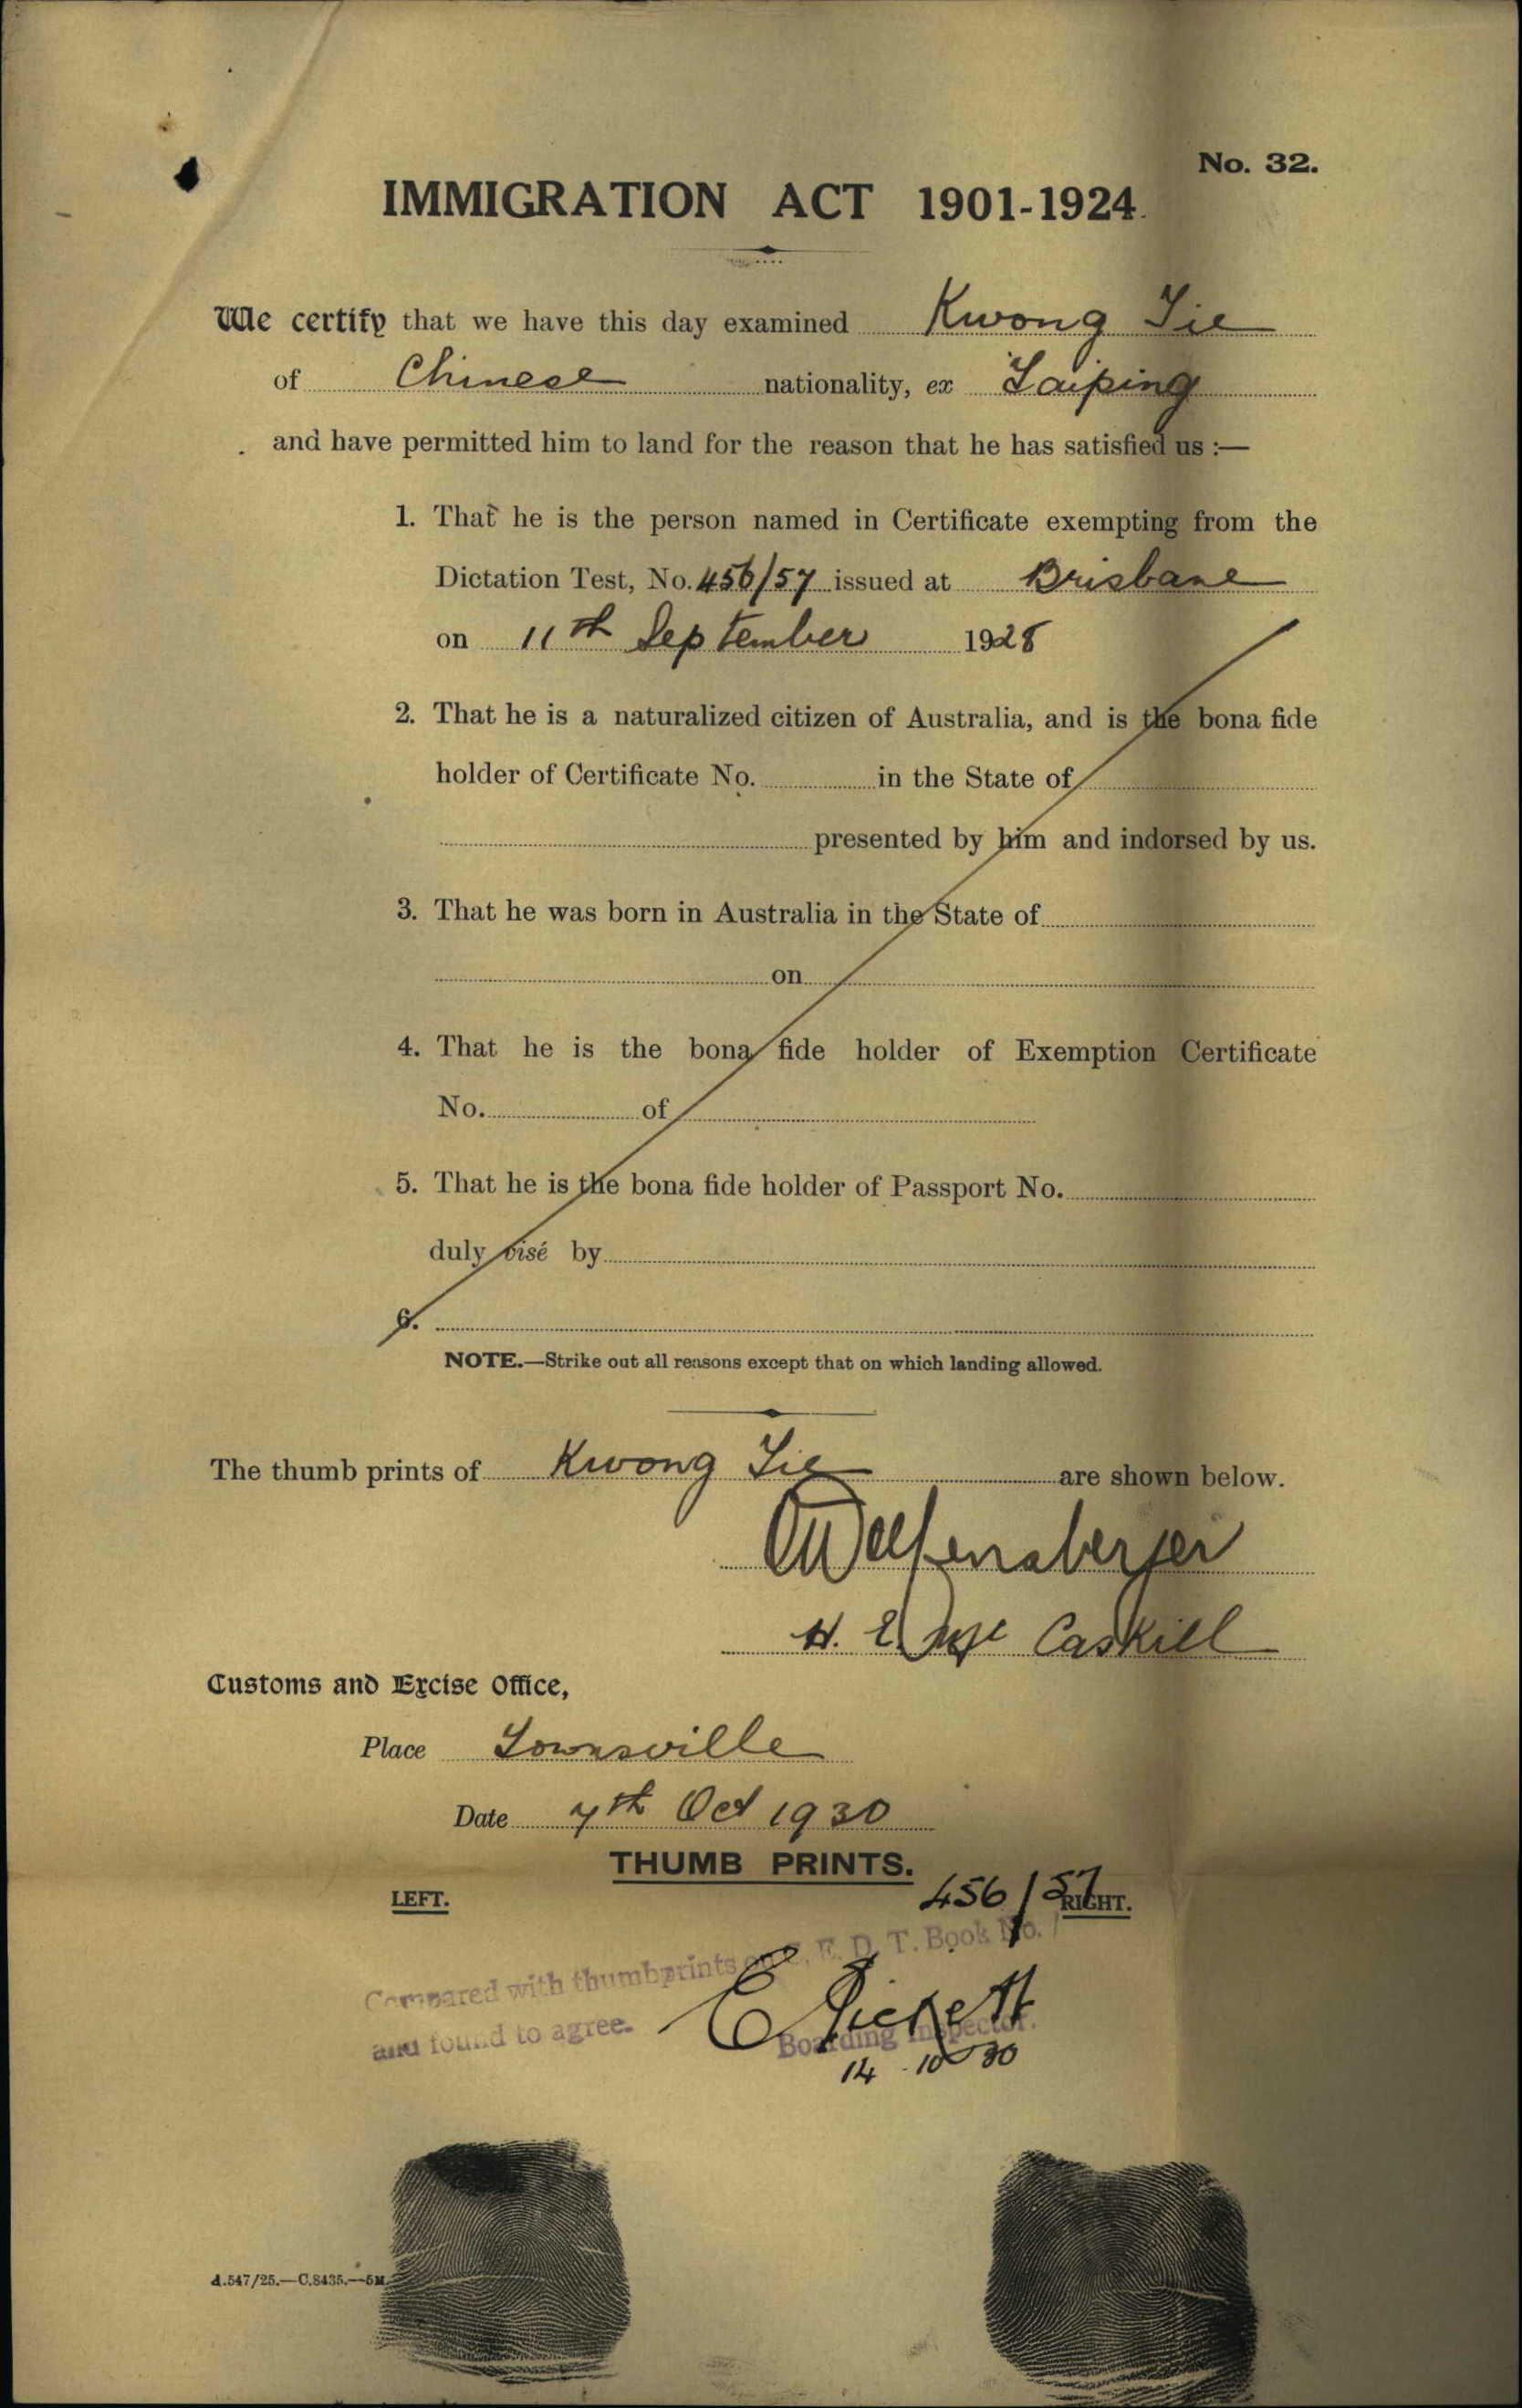 No. 32.
IMMIGRATION ACT 1901-1924.
We certify that we have this day examined Kwong Tie
of Chinese nationality, ex Taiping
and have permitted him to land for the reason that he has satisfied us :—
1. That he is the person named in Certificate exempting from the
Dictation Test, No. 456/57 issued at Brisbane
on 11th September 1928
2. That he is a naturalized citizen of Australia, and is the bona fide
holder of Certificate No. in the State of
presented by him and indorsed by us.
3. That he was born in Australia in the State of
on
4. That he is the bona fide holder of Exemption Certificate
No. of
5. That he is the bona fide holder of Passport No.
duly visé by
6.
NOTE.—Strike out all reasons except that on which landing allowed.
The thumb prints of Kwong Tie are shown below.
H. E. Mc Caskill
Customs and Excise Office,
Place Townsville
Date 7th Oct 1930
THUMB PRINTS.
LEFT. 456/57 RIGHT.
Compared with thumbprints on C. E. D. T. Book No.
and found to agree. E Pickett
Boarding Inspector.
14-10-30
A.547/25.—C.8435.—5M.